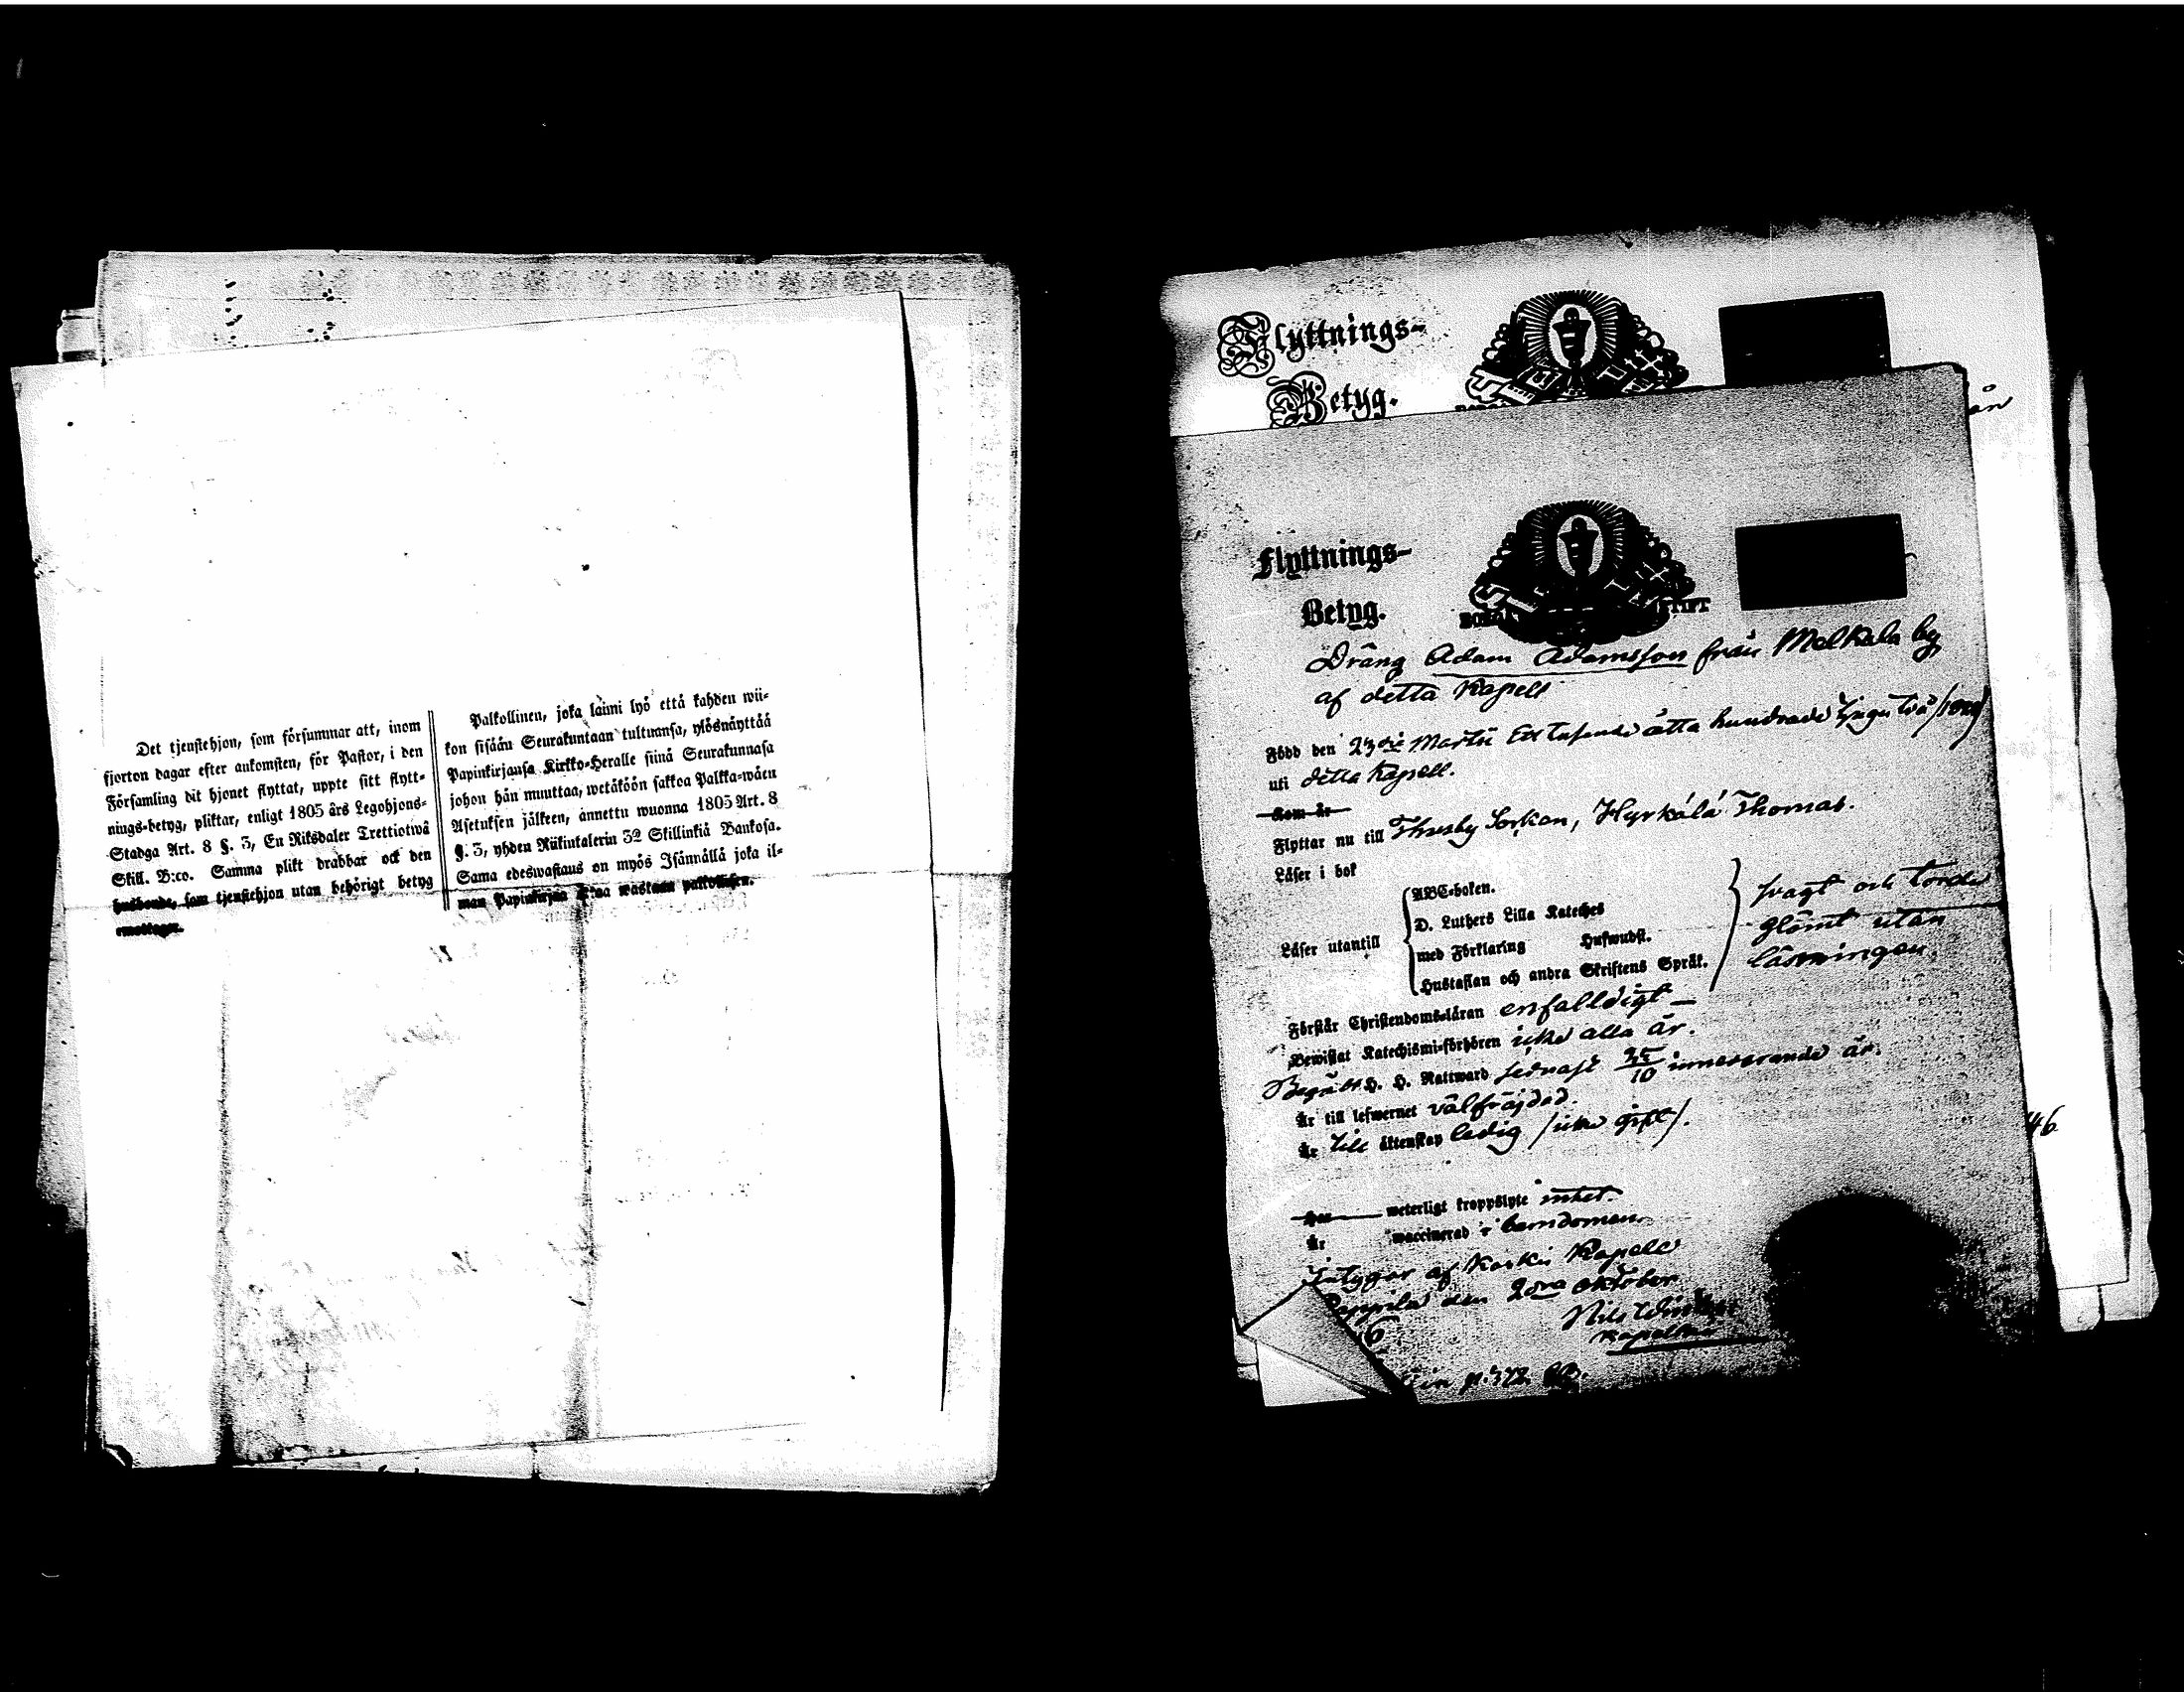 Det tjenstehjon, som försummar att, inom
fjorton dagar efter ankomsten, för Pastor, i den
Församling dit hjonet flyttat, uppte sitt flytt-
nings-betyg, pliktar, enligt 1805 års Legohjons-
Stadga Art. 8 §. 3, En Riksdaler Trettiotwå
Skill. B:co. Samma plikt drabbar ock den
husbonde, som tjenstehjon utan behörigt betyg
emottager.
Palkollinen, joka laimi lyö että kahden wii-
kon sisään Seurakuntaan tultuansa, ylösnäyttää
Papinkirjansa Kirkko-Heralle siinä Seurakunnasa
johon hän muuttaa, wetäköön sakkoa Palkka-wäen
Asetuksen jälkeen, annettu wuonna 1805 Art. 8
§. 3, yhden Riikintalerin 32 Skillinkiä Bankosa.
Sama edeswastaus on myös Isännällä joka il-
man Papinkirjaa wastaan palkollisen.
Flyttnings-
Betyg.
46
Flyttnings-
Betyg.
Dräng Adam Adamsson från Melkala by
af detta Kapell
Född den 23die Martii Ett tusende åtta hundrade tjugu två
uti detta Kapell.
Som är
Flyttar nu till Thusby Sockan, Hyrkälä Thomas.
Läser i bok
Läser utantill
ABC-boken.
D. Luthers Lilla Kateches
med Förklaring Huswudst.
Hustaflan och andra Skriftens Språk.
svagt och torde
glömt utan
läsningen.
Förstår Christendoms-läran enfalldigt
Bewistat Katechismi-förhören icke alla år.
Begått H. H. Nattward sednast innevarande år.
Är till lefwernet välfräjdad.
Är till äktenskap ledig /icke gift/.
Har weterligt kroppslyte intet.
Är waccinerad i barndomen
Intygar af Kapell
den Oktober
Nils
p. 372